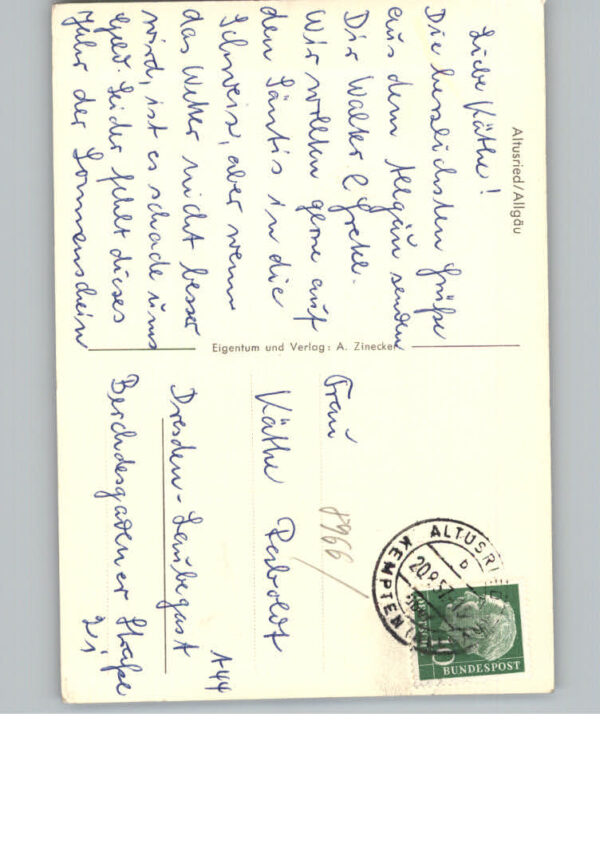 Altusried/Allgäu
Liebe Käthe!
Die herzlichsten Grüße
aus dem Allgäu senden
Dir Walter & Gretel.
Wir wollten gerne auf
den Säntis in die
Schweiz, aber wenn
das Wetter nicht besser
wird, ist es schade ums
Geld. Leider fehlt dieses
Jahr der Sonnenschein
Eigentum und Verlag: A. Zinecker
Frau
Käthe
Dresden-Laubegast
A44
Berchdesgadener Straße
21
8966
ALTUSRIED
KEMPTEN
20.8.57
BUNDESPOST